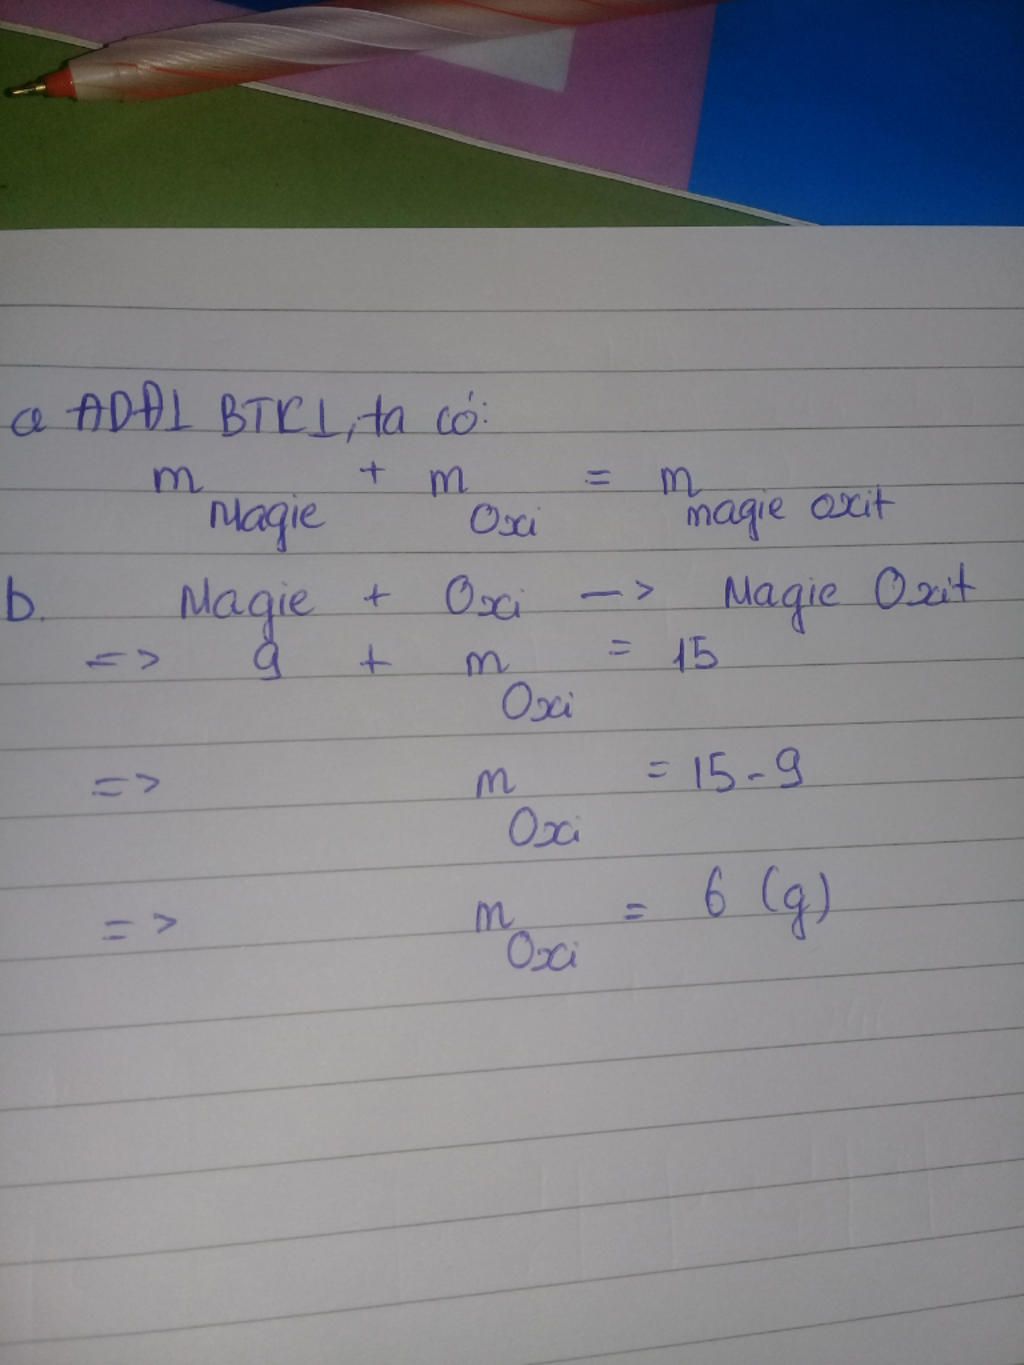 a ADĐL BTKL, ta có:
m Magie + m Oxi = m magie oxit
b. Magie + Oxi -> Magie Oxit
=> 9 + m Oxi = 15
=> m Oxi = 15 - 9
=> m Oxi = 6 (g)